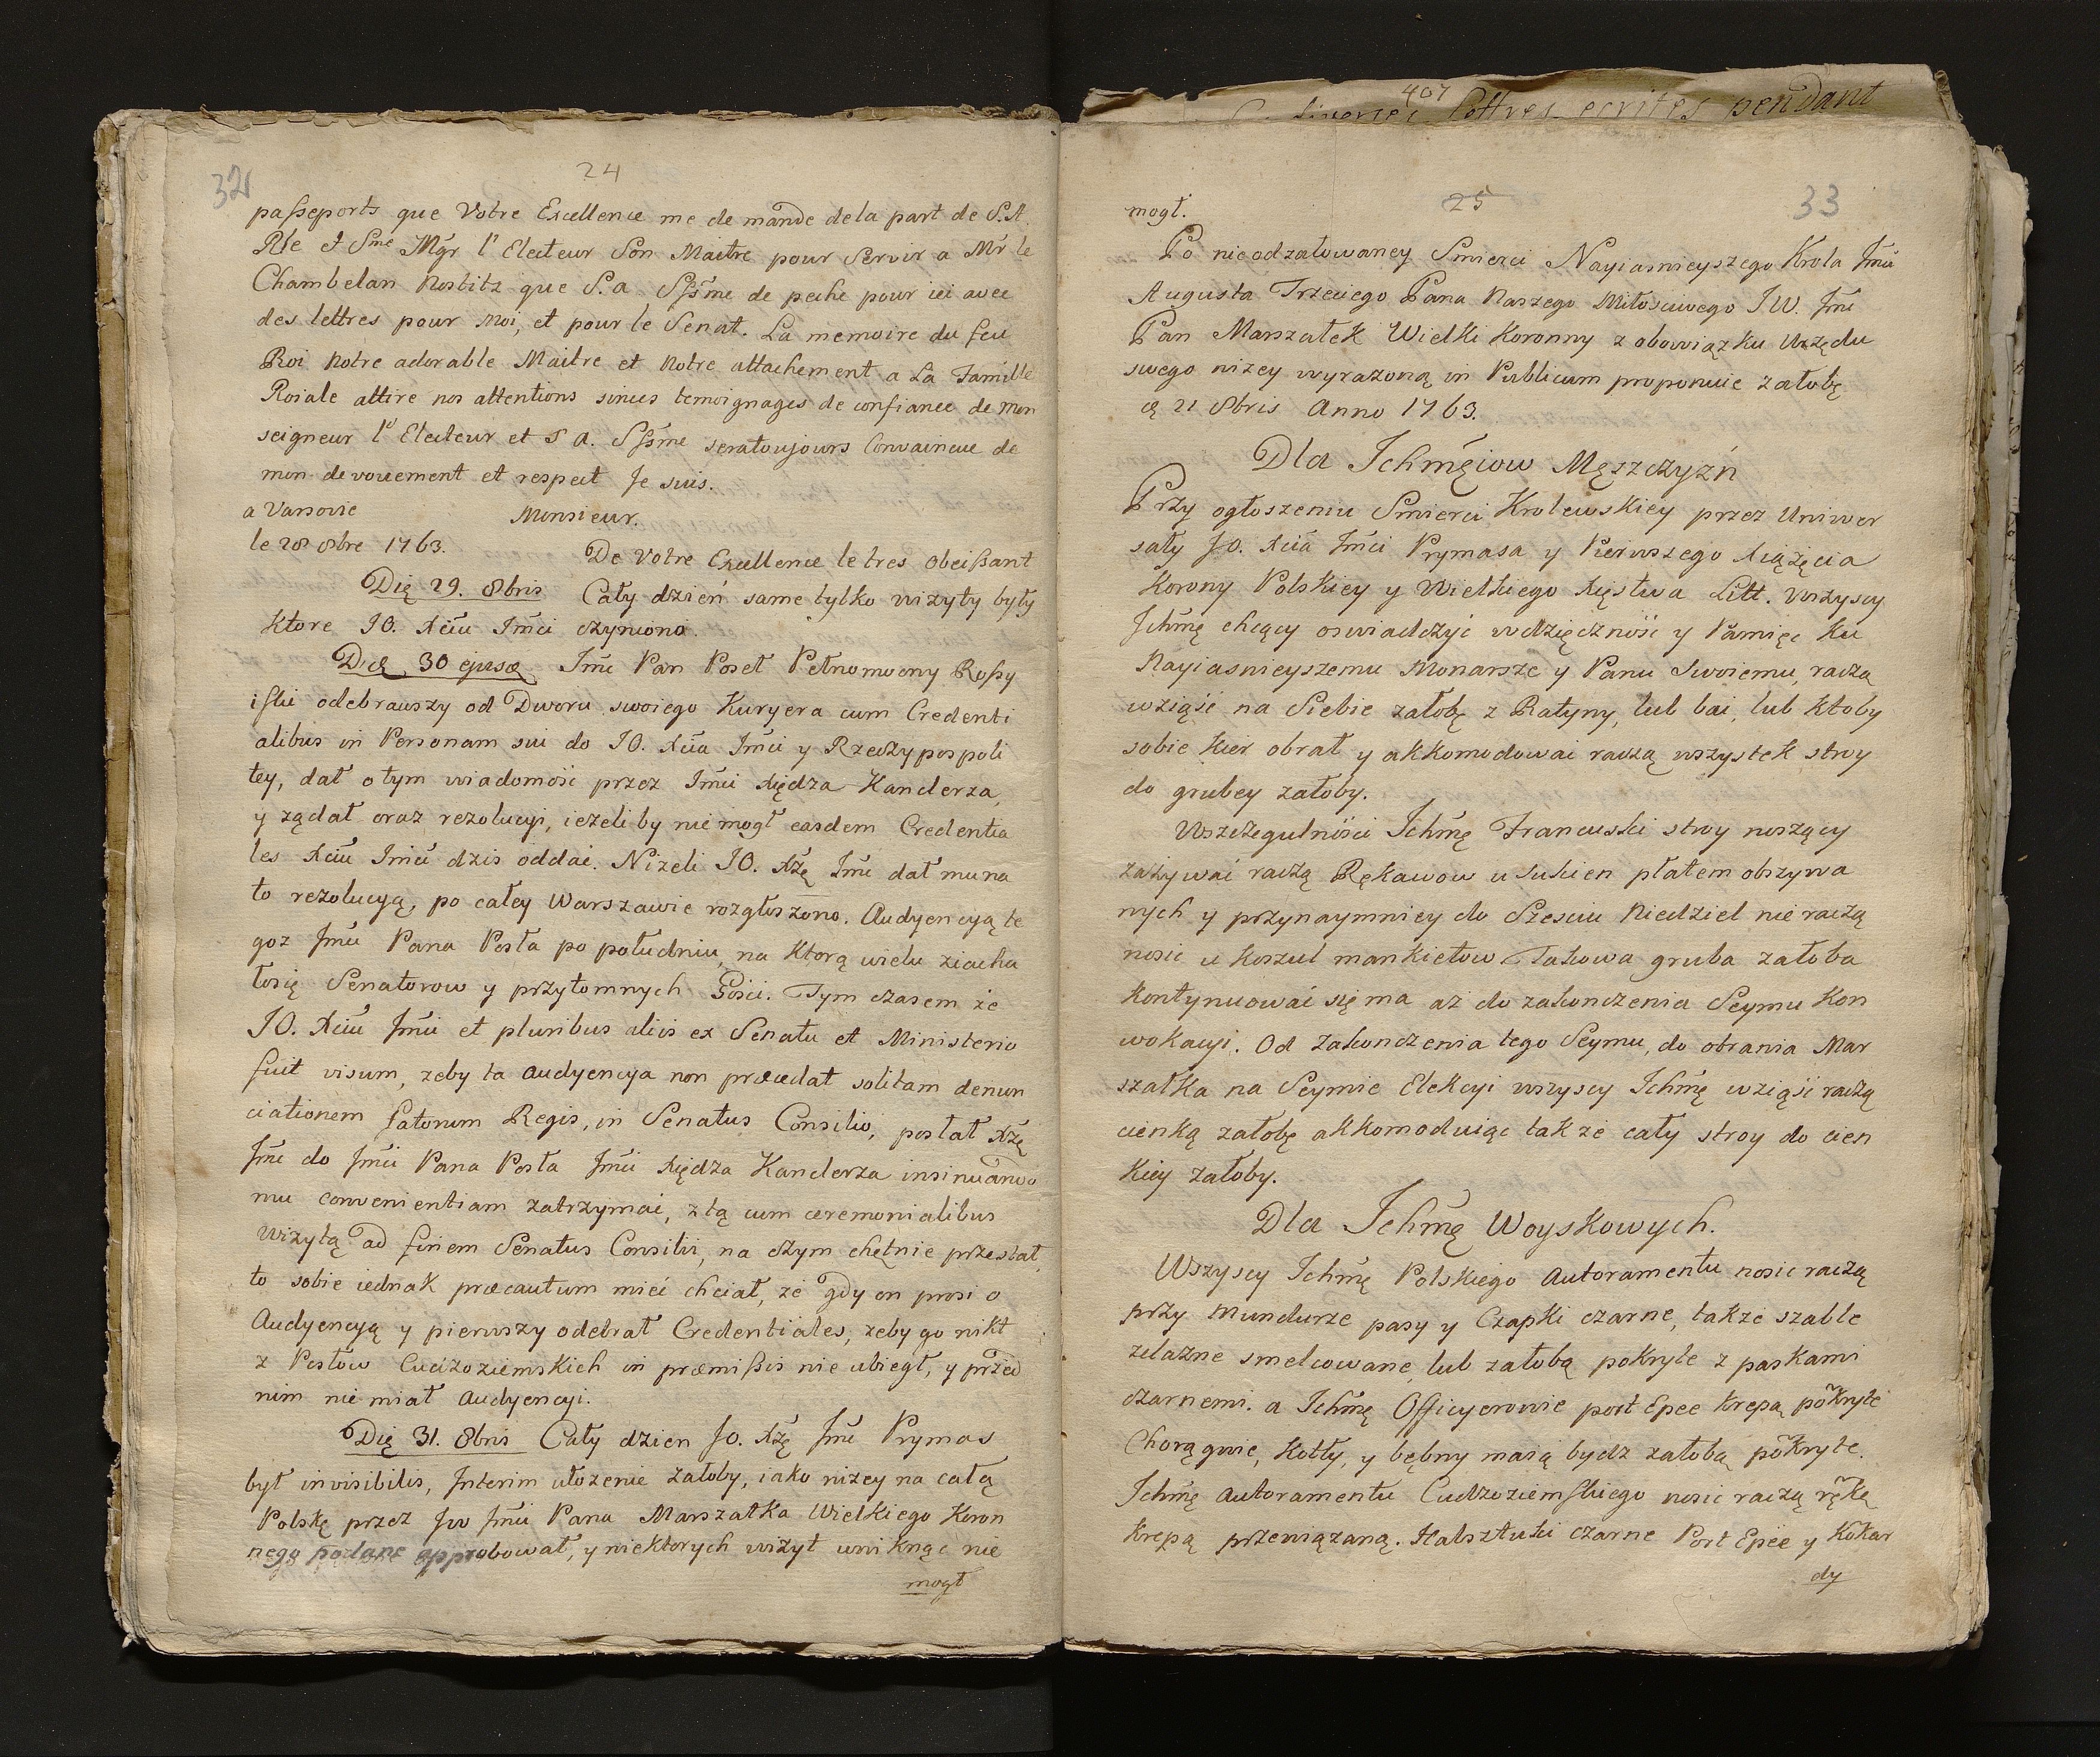 32
24
paſseports que Votre Excellence me de mande dela part de S.A
Rle et Sme Mgr l' Electeur Son Maitre pour servir a Mr le
Chambelan Nostitz que S.a Sſsme de peche pour ici avec
des lettres pour moi, et pour le Senat. La memoire du feu
Roi notre adorable Maitre et notre attachement a La Famille
Roiale attire nos attentions sinces temoignages de confiance de Mon
seigneur l' Electeur et S a. Sſsme seratoujours Convaincue de
mon devouement et respect Je suis.
a Varsovie Monsieur.
le 28 8bre 1763. De Votre Excellence le tres obeiſsant
Dię 29. 8bris Cały dzień same tylko wizyty były
ktore JO. Xciu Jmci czyniono.
Dię 30 ejusq Jmć Pan Poseł Pełnomocny Roſsy
iſki odebrawszy od Dworu swoiego Kuryera cum Credenti
alibus in Personam sui do JO. Xcia Jmci y Rzeczypospoli
tey, dał o tym wiadomość przez Jmci Xiędza Kanclerza,
y żądał oraz rezolucyi, ieżeliby nie mogł easdem Credentia
les Xciu Jmci dzis oddać. Niżeli JO. Xżę Jmć dał mu na
to rezolucyą, po całey Warszawie rozgłoszono. Audyencyą te
goz Jmci Pana Posła po południu, na ktorą wielu ziecha
łosię Senatorow y przytomnych Gości. Tym czasem że
JO. Xciu Jmci et pluribus aliis ex Senatu et Ministerio
fuit visum, zeby ta audyencya non præcedat solitam denun
ciationem fatorum Regis, in Senatus Consilio, posłał Xżę
Jmć do Jmci Pana Posła Jmci Xiędza Kanclerza insinuando
mu convenientiam zatrzymać, z tą cum ceremonialibus
wizytą ad finem Senatus Consilii, na czym chętnie przestał,
to sobie iednak præcautum mieć chciał, że gdy on prosi o
Audyencyą y pierwszy odebrał Credentiales, zeby go nikt
z Posłow Cudzoziemskich in præmiſsis nie ubiegł, y przed
nim nie miał Audyencyi.
Dię 31. 8bris Cały dzien Jo. Xżę Jmć Prymas
był invisibilis, Interim ułożenie żałoby, iako niżey na całą
Polskę przez Jw Jmci Pana Marszałka Wielkiego Koron
nego podane approbował, y niektorych wizyt uniknąc nie
mogł
407
diverses Lettres ecrites pendant
25
33
mogł.
Po nieodżałowaney Smierci Nayiasnieyszego Krola Jmci
Augusta Trzeciego Pana Naszego Miłościwego J.W. Jmć
Pan Marszałek Wielki Koronny z obowiązku Urzędu
swego niżey wyrażoną in Publicum proponuie żałobę
21 8bris Anno 1763.
Dla Ichmęciow Męszczyźń
Przy ogłoszeniu Smierci Krolewskiey przez Uniwer
sały JO. Xcia Jmci Prymasa y Pierwszego Xiążęcia
Korony Polskiey y Wielkiego Xięstwa Litt. Wszyscy
Ichmę chcący oswiadczyć wdzięczność y Pamięc ku
Nayiasnieyszemu Monarsze y Panu Swoiemu, raczą
wziąść na Siebie żałobę z Ratyny, lub bai, lub ktoby
sobie kier obrał y akkomodować raczą wszystek stroy
do grubey żałoby.
Wszczegulności Ichmę Francuski stroy noszący
zażywać raczą Rękawow u Sukien płatem obszywa
nych y przynaymniey do Sześciu Niedziel nie raczą
nosic u Koszul mankietow Takowa gruba żałoba
kontynuować się ma aż do zakonczenia Seymu Kon
wokacyi. Od zakonczenia tego Seymu, do obrania Mar
szałka na Seymie Elekcyi wszyscy Ichmę wziąść raczą
cienką żałobę akkomoduiąc takze cały stroy do cien
kiey żałoby.
Dla Ichmę Woyskowych.
Wszyscy Ichmę Polskiego Autoramentu nosic raczą
przy Mundurze pasy y Czapki czarne, także szable
żelazne smelcowane, lub żałobą pokryte z paskami
czarnemi. a Ichmę Officyerowie port Epee krepą pokryte
Chorągwie, Kotły, y bębny maią bydz żałobą pokryte.
Ichmę Autoramentu Cudzoziemſkiego nosic raczą rękę
krepą przewiązaną. Halsztuki czarne Port Epée y Kokar
dy